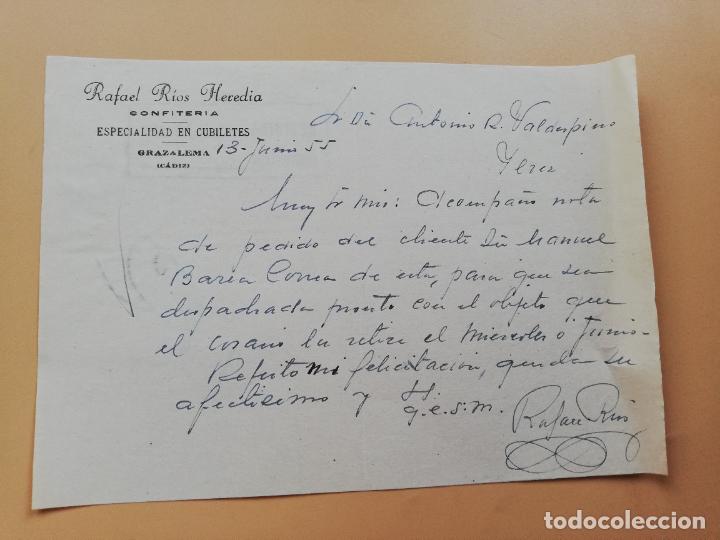 Rafael Ríos Heredia
CONFITERIA
ESPECIALIDAD EN CUBILETES
GRAZALEMA 13- Junio 55
(CÁDIZ)
Sr Dn Antonio R. Valdespino
Jerez
Muy Sr mio: Acompaño nota
de pedido del cliente Dn Manuel
Barea Correa de esta, para que sea
despachada pronto con el objeto que
el cosario la retire el Miercoles o
Repito mi felicitación, queda su
afectisimo y q.e.s.m.
Rafael Ríos
todocoleccion
todocoleccion.net